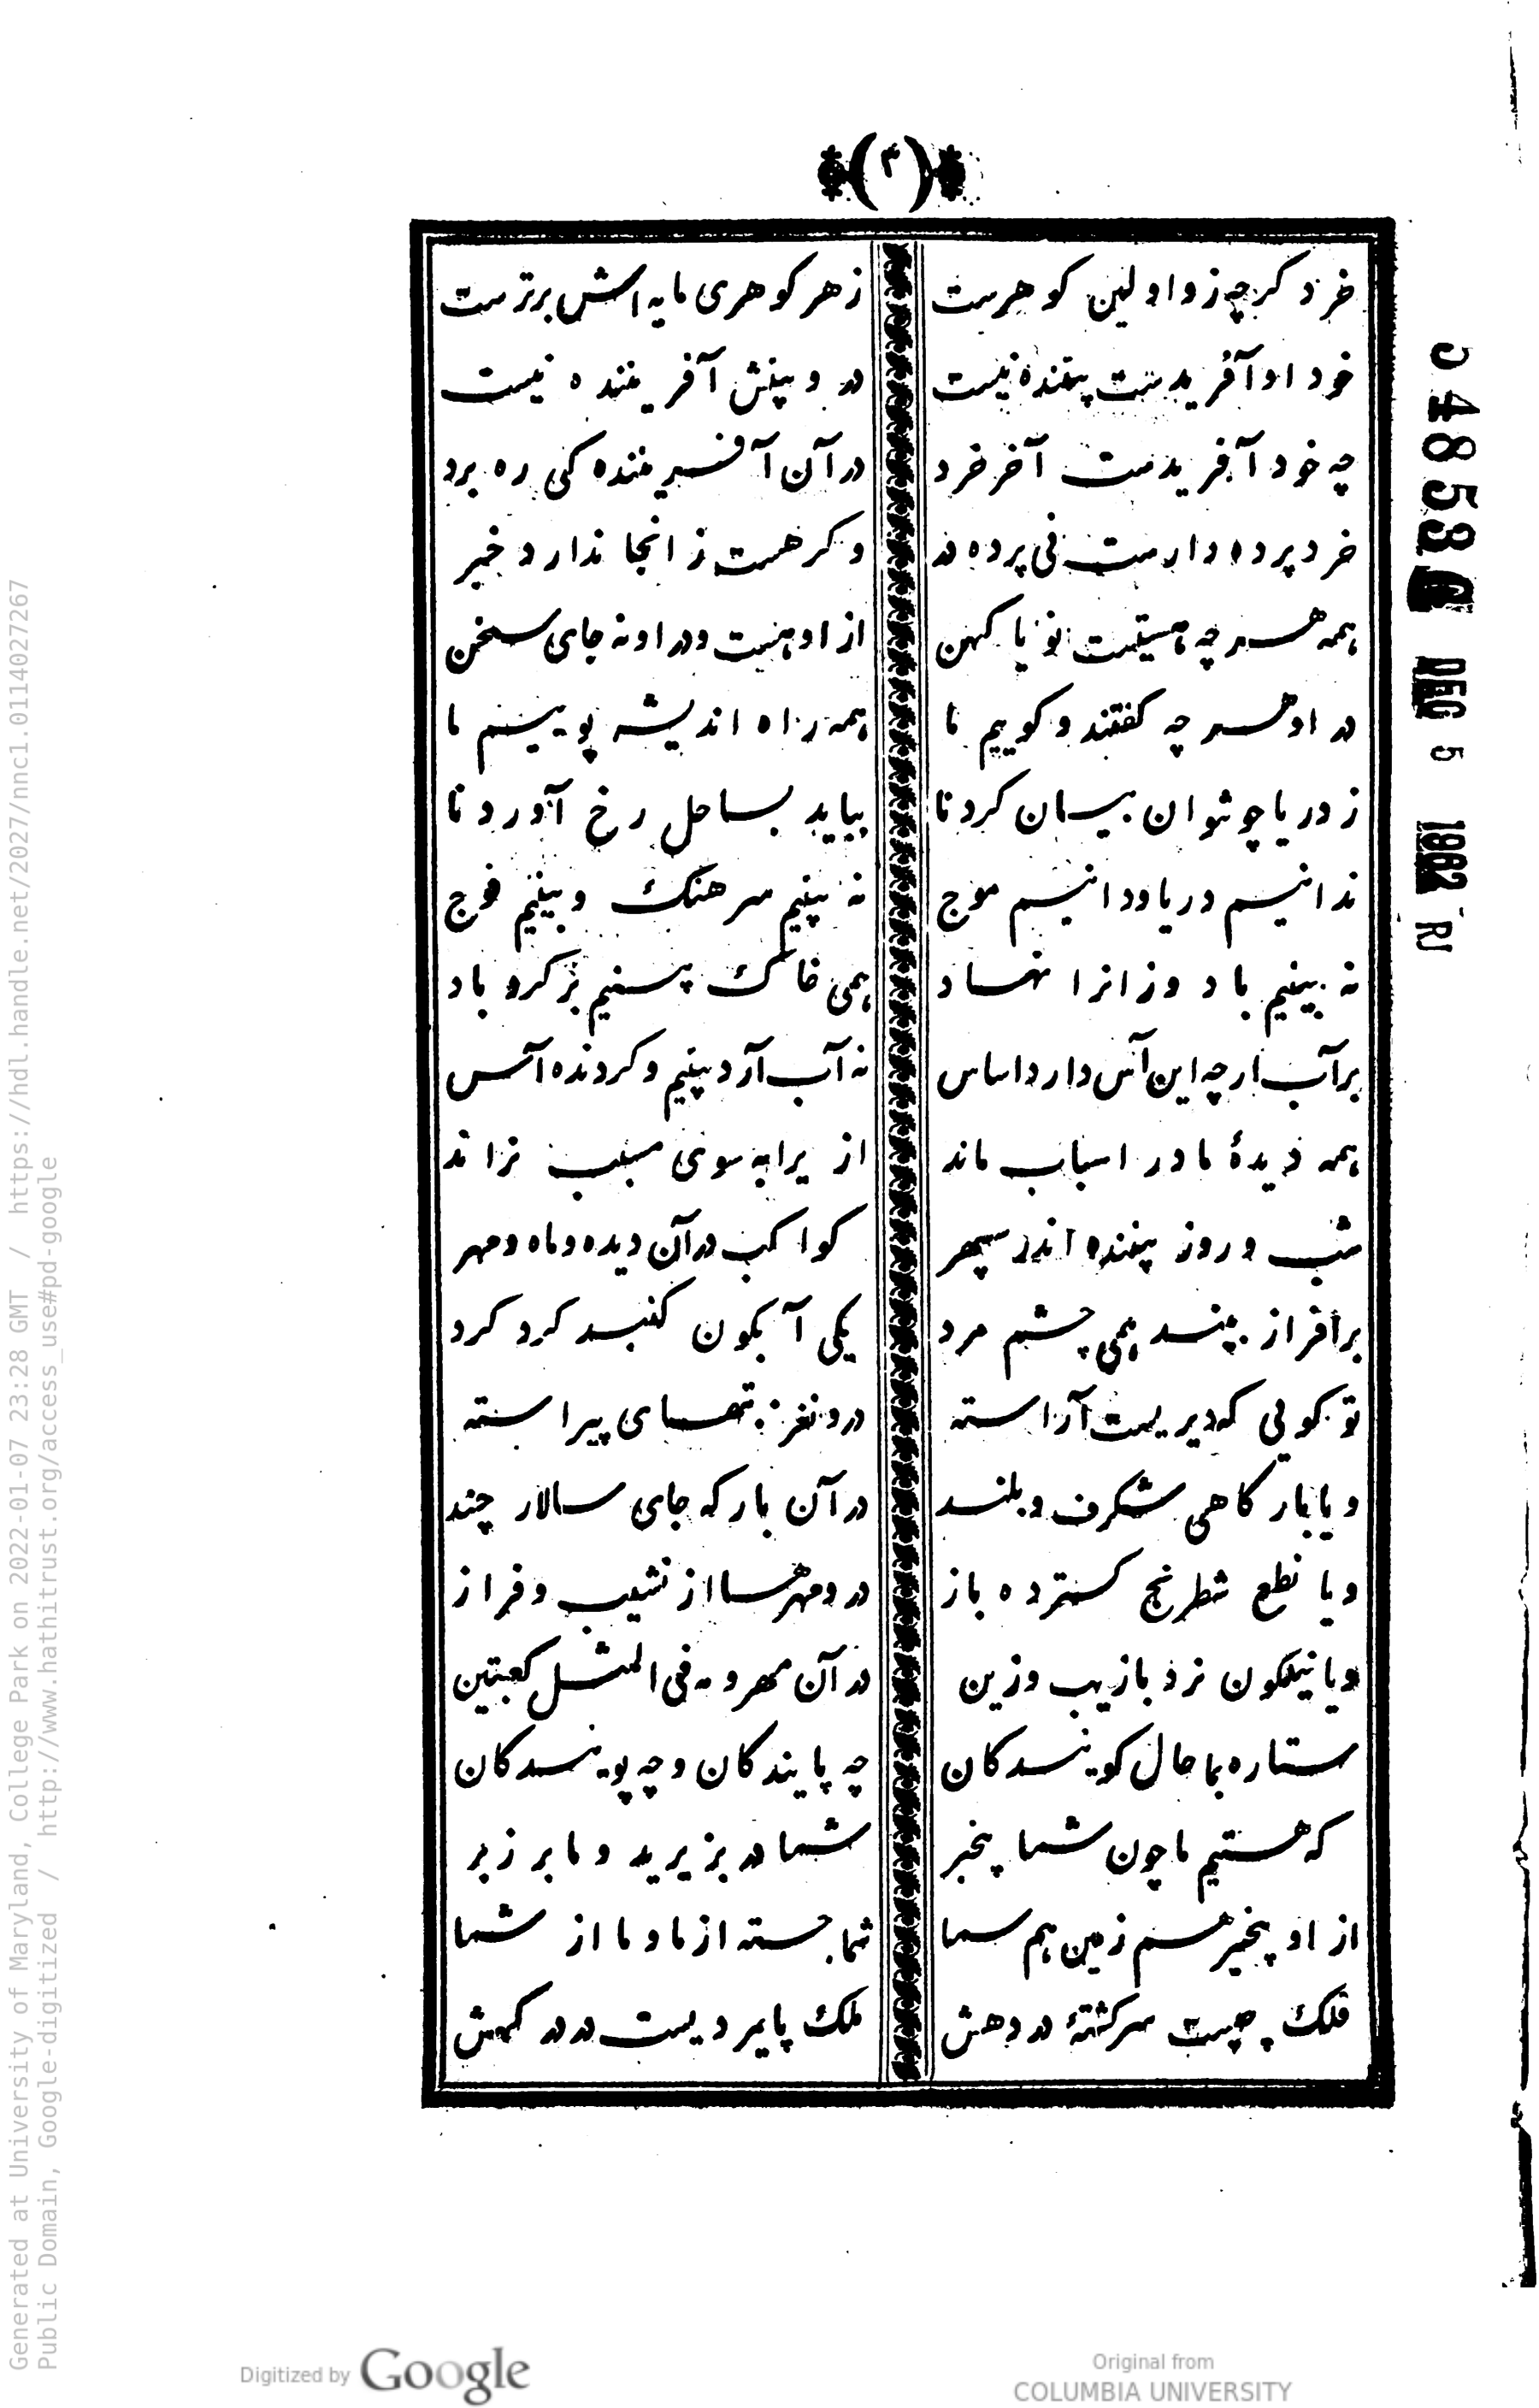 (۳)
خرد کرچه زو اولین کوهرست زهر کوهری مایه اش برترست
خود او آفریدست پیننده نیست در و پینش آفریننده نیست
چه خود آفریدست آخر خرد در آن آفریننده کی ره برد
خرد پرده دارست فی پرده در و کر هست ز انجا ندارد خبر
همه هرچه هستیست نو یا کهن از او هست ودر او نه جای سخن
در او هرچه کفتند و کوییم ما همه راه اندیشه پوییم ما
ز دریا چو نتوان بیان کرد نا بیاید بساحل رخ آورد نا
ندانیم دریا ودانیم موج نه بینیم سرهنک و بینیم فوج
نه بینیم باد وز انرا نهاد همی خاک بینیم بر کرو باد
بر آب ارچه این آس دارد اساس نه آب آرد بینیم و کردنده آس
همه دیدهٔ ما در اسباب ماند از یرا به سوی مسبب نراند
شب و روز بیننده اندر سپهر کواکب در آن دیده و ماه و مهر
بر افراز بیند همی چشم مرد یکی آبکون کنبد کرد کرد
تو کویی که دیریست آراسته در و نغز بتهای پیراسته
و یا بارکاهی شکرف و بلند در آن بارکه جای سالار چند
و یا نطع شطرنج کسترده باز در و مهرها از نشیب و فراز
و یا نیلکون نرد بازیب وزین در آن مهر و مه فی المثل کعبتین
ستاره بما حال کویندکان چه پایندکان و چه پویندکان
که هستیم ما چون شما بیخبر شما در بزیرید و ما بر زبر
از او بیخبر هم زمین هم سما شما جسته از ما و ما از شما
فلک چیست سرکشتهٔ در دهش ملک پایمردیست در درکهش
548536
DEC 5 1962 RJ
Generated at University of Maryland, College Park on 2022-01-07 23:28 GMT / https://hdl.handle.net/2027/nnc1.0114027267
Public Domain, Google-digitized / http://www.hathitrust.org/access_use#pd-google
Digitized by Google
Original from
COLUMBIA UNIVERSITY